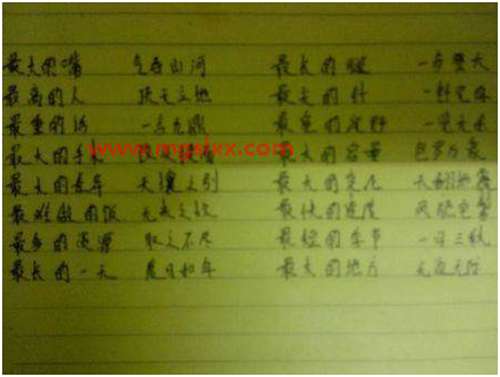 最大的嘴 气吞山河 最长的腿 一步登天
最高的人 顶天立地 最大的针
最重的话 一言九鼎 最宽的视野 一览无余
最大的手 www.mgslxx.com 最大的容量 包罗万象
最大的差异 天壤之别 最大的变化 天翻地覆
最难做的饭 无米之炊 最快的速度 风驰电掣
最多的 取之不尽 最短的季节 一日三秋
最长的一天 度日如年 最大的地方 无边无际